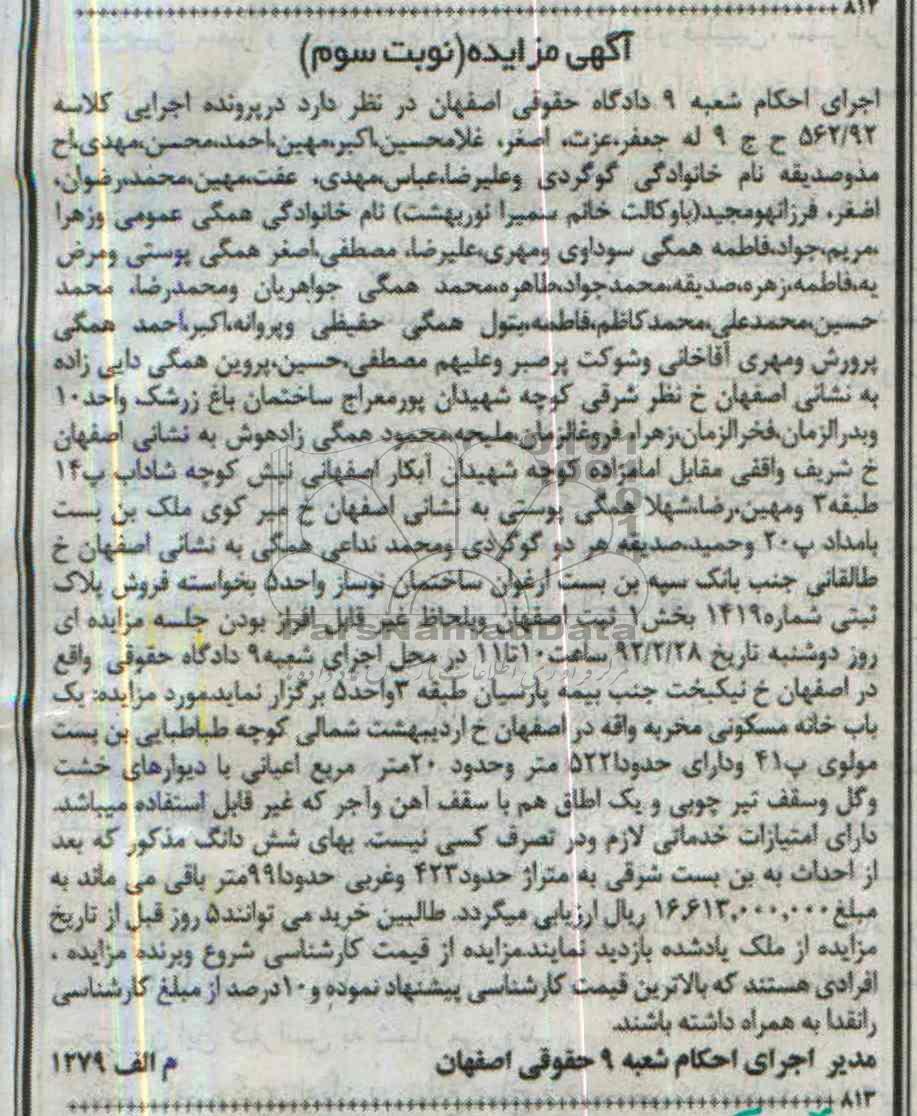 ۸۱۲
آگهی مزایده(نوبت سوم)
اجرای احکام شعبه ۹ دادگاه حقوقی اصفهان در نظر دارد درپرونده اجرایی کلاسه
۵۶۲/۹۲ ح ج ۹ له جعفر،عزت، اصغر، غلامحسین،اکبر،مهین،احمد،محسن،مهدی،اح
مدوصدیقه نام خانوادگی گوگردی وعلیرضا،عباس،مهدی، عفت،مهین،محمد،رضوان،
اصغر، فرزانهومجید(باوکالت خانم سمیرا نوربهشت) نام خانوادگی همگی عمومی وزهرا
،مریم،جواد،فاطمه همگی سوداوی ومهری،علیرضا، مصطفی،اصغر همگی پوستی ومرض
یه،فاطمه،زهره،صدیقه،محمدجواد،طاهره،محمد همگی جواهریان ومحمدرضا، محمد
حسین،محمدعلی،محمدکاظم،فاطمه،بتول همگی حقیظی وپروانه،اکبر،احمد همگی
پرورش ومهری آقاخانی وشوکت پرصبر وعلیهم مصطفی،حسین،پروین همگی دایی زاده
به نشانی اصفهان خ نظر شرقی کوچه شهیدان پورمعراج ساختمان باغ زرشک واحد۱۰
وبدرالزمان،فخرالزمان،زهرا، فروغالزمان،ملیحه،محمود همگی زادهوش به نشانی اصفهان
خ شریف واقفی مقابل امامزاده کوچه شهیدان آبکار اصفهانی نبش کوچه شاداب پ۱۴
طبقه۳ ومهین،رضا،شهلا همگی پوستی به نشانی اصفهان خ میر کوی ملک بن بست
بامداد پ۲۰ وحمید،صدیقه هر دو گوگردی ومحمد نداعی همگی به نشانی اصفهان خ
طالقانی جنب بانک سپه بن بست ارغوان ساختمان نوساز واحد۵ بخواسته فروش پلاک
ثبتی شماره۱۴۱۹ بخش۱ ثبت اصفهان وبلحاظ غیر قابل افراز بودن جلسه مزایده ای
روز دوشنبه تاریخ ۹۲/۲/۲۸ ساعت۱۰تا۱۱ در محل اجرای شعبه۹ دادگاه حقوقی واقع
در اصفهان خ نیکبخت جنب بیمه پارسیان طبقه ۳واحد۵ برگزار نماید.مورد مزایده: یک
باب خانه مسکونی مخربه واقه در اصفهان خ اردیبهشت شمالی کوچه طباطبایی بن بست
مولوی پ۴۱ ودارای حدودا۵۲۲ متر وحدود ۲۰متر مربع اعیانی با دیوارهای خشت
وگل وسقف تیر چوبی و یک اطاق هم با سقف آهن وآجر که غیر قابل استفاده میباشد.
دارای امتیازات خدماتی لازم ودر تصرف کسی نیست. بهای شش دانگ مذکور که بعد
از احداث به بن بست شرقی به متراژ حدود۴۲۳ وغربی حدودا۹۹متر باقی می ماند به
مبلغ۱۶,۶۱۳,۰۰۰,۰۰۰ ریال ارزیابی میگردد. طالبین خرید می توانند۵ روز قبل از تاریخ
مزایده از ملک یادشده بازدید نمایند.مزایده از قیمت کارشناسی شروع وبرنده مزایده ،
افرادی هستند که بالاترین قیمت کارشناسی پیشنهاد نموده و ۱۰درصد از مبلغ کارشناسی
رانقدا به همراه داشته باشند.
مدیر اجرای احکام شعبه ۹ حقوقی اصفهان م الف ۱۲۷۹
۸۱۳
ParsNamadData